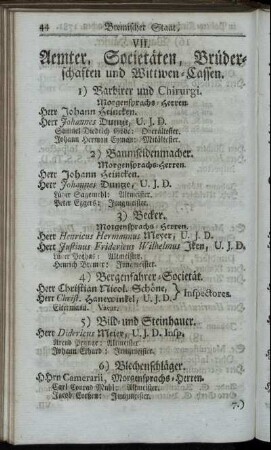 44 Bremischer Staat,
VII.
Aemter, Societäten, Brüder-
schaften und Wittwen-Cassen.
1) Barbirer und Chirurgi.
Morgensprachs-Herren.
Herr Johann Heincken.
Herr Johannes Duntze, U. J. D.
Samuel Diedrich : Oberältester.
Johann Herman : Mitältester.
2) Baumseidenmacher.
Morgensprachs-Herren.
Herr Johann Heincken.
Herr Johannes Duntze, U. J. D.
Lüder : Altmeister.
Peter Eggers : Jungmeister.
3) Becker.
Morgensprachs-Herren.
Herr Henricus Hermannus Meyer, U. J. D.
Herr Justinus Fridericus Wilhelmus Iken, U. J. D.
Lüder : Altmeister.
Henrich : Jungmeister.
4) Bergenfahrer-Societät.
Herr Christian Nicol. Schöne,
Herr Christ. Hanewinkel, U. J. D. } Inspectores.
5) Bild- und Steinhauer.
Herr Didericus Meier, U. J. D. Insp.
Arend : Altmeister
Johann : Jungmeister.
6) Blechenschläger.
HHrn Camerarii, Morgensprachs-Herren.
Carl Conrad : Altmeister.
Jacob : Jungmeister.
7.)